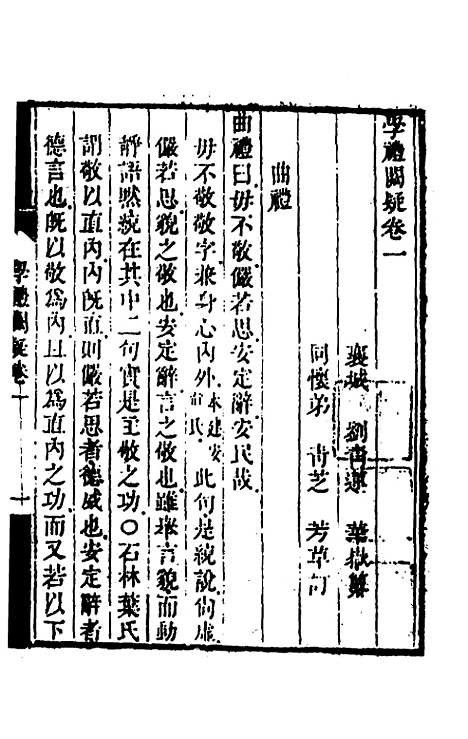 學禮闕疑卷一
襄城 劉青蓮 華嶽纂
同懷弟 青芝 芳草訂
曲禮
曲禮曰毋不敬儼若思安定辭安民哉
毋不敬敬字兼身心內外本建安真氏此句是統說尙虛
儼若思貌之敬也安定辭言之敬也雖舉言貌而動
靜語默統在其中二句實是主敬之功〇石林葉氏
謂敬以直內內旣直則儼若思者德威也安定辭者
德言也旣以敬爲內且以爲直內之功而又若以下
學禮闕疑卷一 一